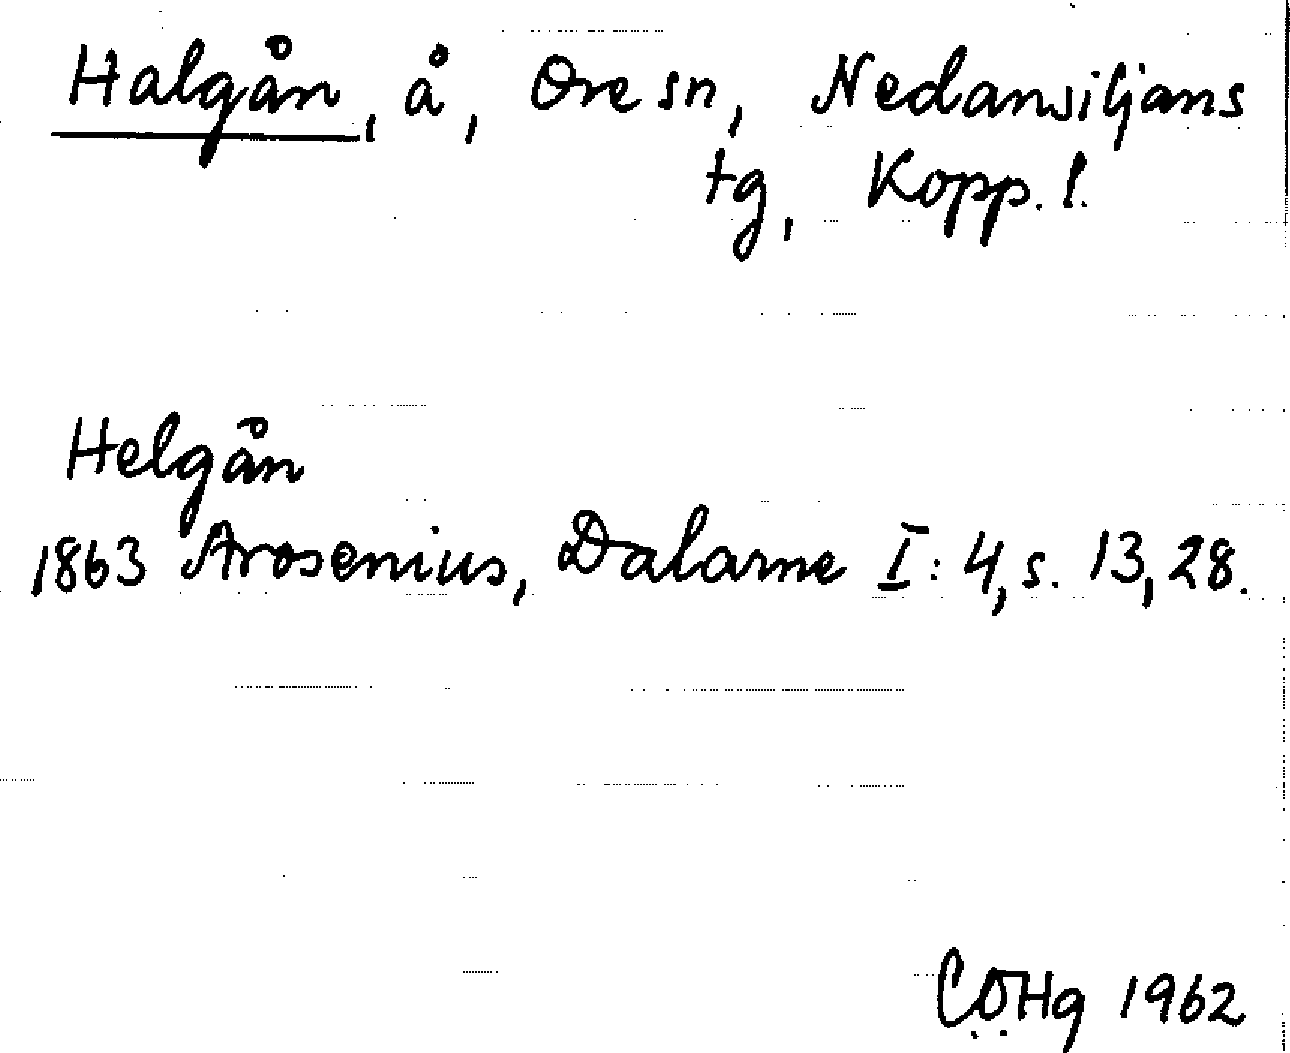 Halgån, å, Ore sn, Nedansiljans
tg, Kopp. l.
Helgån
1863 Arosenius, Dalarne I: 4, s. 13, 28.
COHg 1962